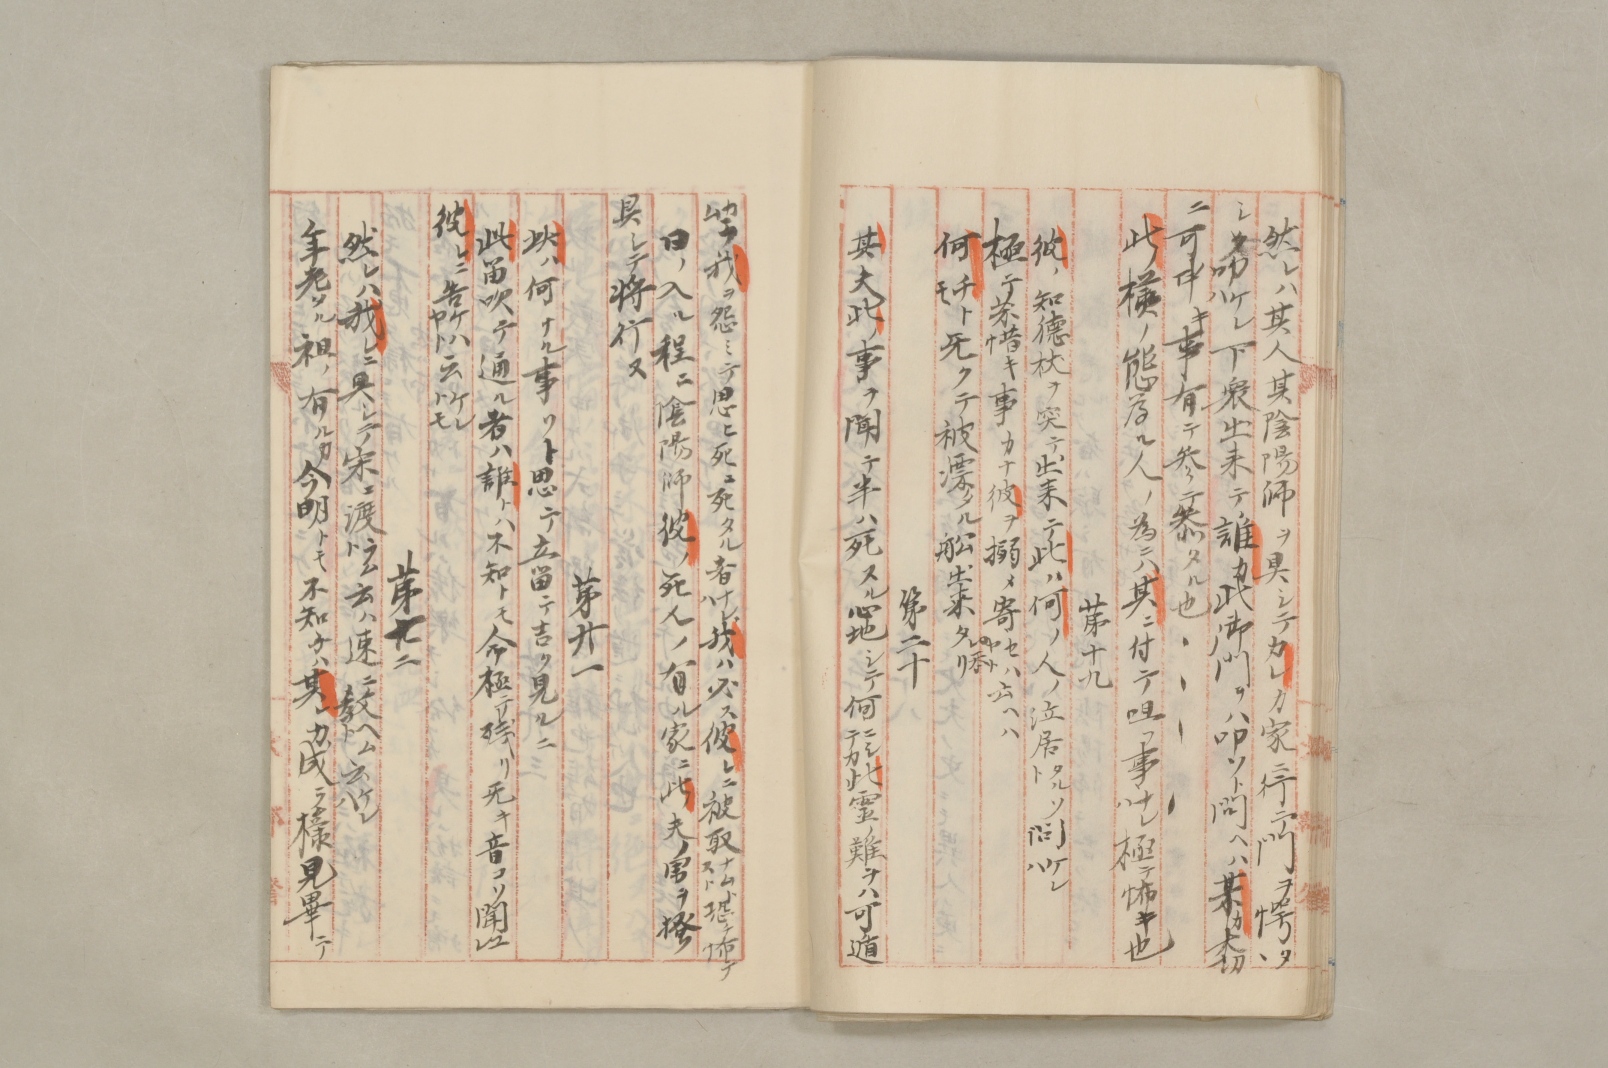 然レハ其人其陰陽師ヲ具シテカレカ家ニ行テ門ヲ愕〻タ
シク叩ハケレ下衆出来テ誰カ此御門ヲハ叩ソト問ヘハ某カ大切
ニ可申キ事有テ参テ来タル也
此樣ノ態為ル人ノ為ニハ其ニ付テ咀フ事ナレハ極テ怖キ也
第十九
彼ノ知德杖ヲ突テ出来テ此ハ何ノ人ノ泣居タルソト問ハケレ
極テ茶惜キ事カナ彼ヲ搦メ寄セハヤト云ヘハ
何チトモ无クテ被漂タル舩出来タリ
第二十
其夫此ノ事ヲ聞テ半ハ死スル心地シテ何ニシテカ此霊ノ難ヲハ可遁
我ヲ怨ミテ思ヒ死ニ死タル者ナレハ我ハ必ス彼レニ被取ナムスト恐チ怖テ
日ノ入ル程ニ陰陽師彼ノ死人ノ有ル家ニ此ノ夫ノ男ヲ搔
具シテ将行ヌ
第廿一
此ハ何ナル事ソト思テ立留テ吉ク見ルニ
此笛吹テ通ル者ハ誰トハ不知トモ命極テ残リ无キ音コソ聞ユレ
彼レニ告ケハヤト云ケレトモ
第廿二
然レハ我レニ具シテ宋ニ渡ト云ハ速ニ教ヘムト云ハケレ
年老タル祖ノ有ルカ今明トモ不知ヲハ其レカ成ラ樣見畢テ